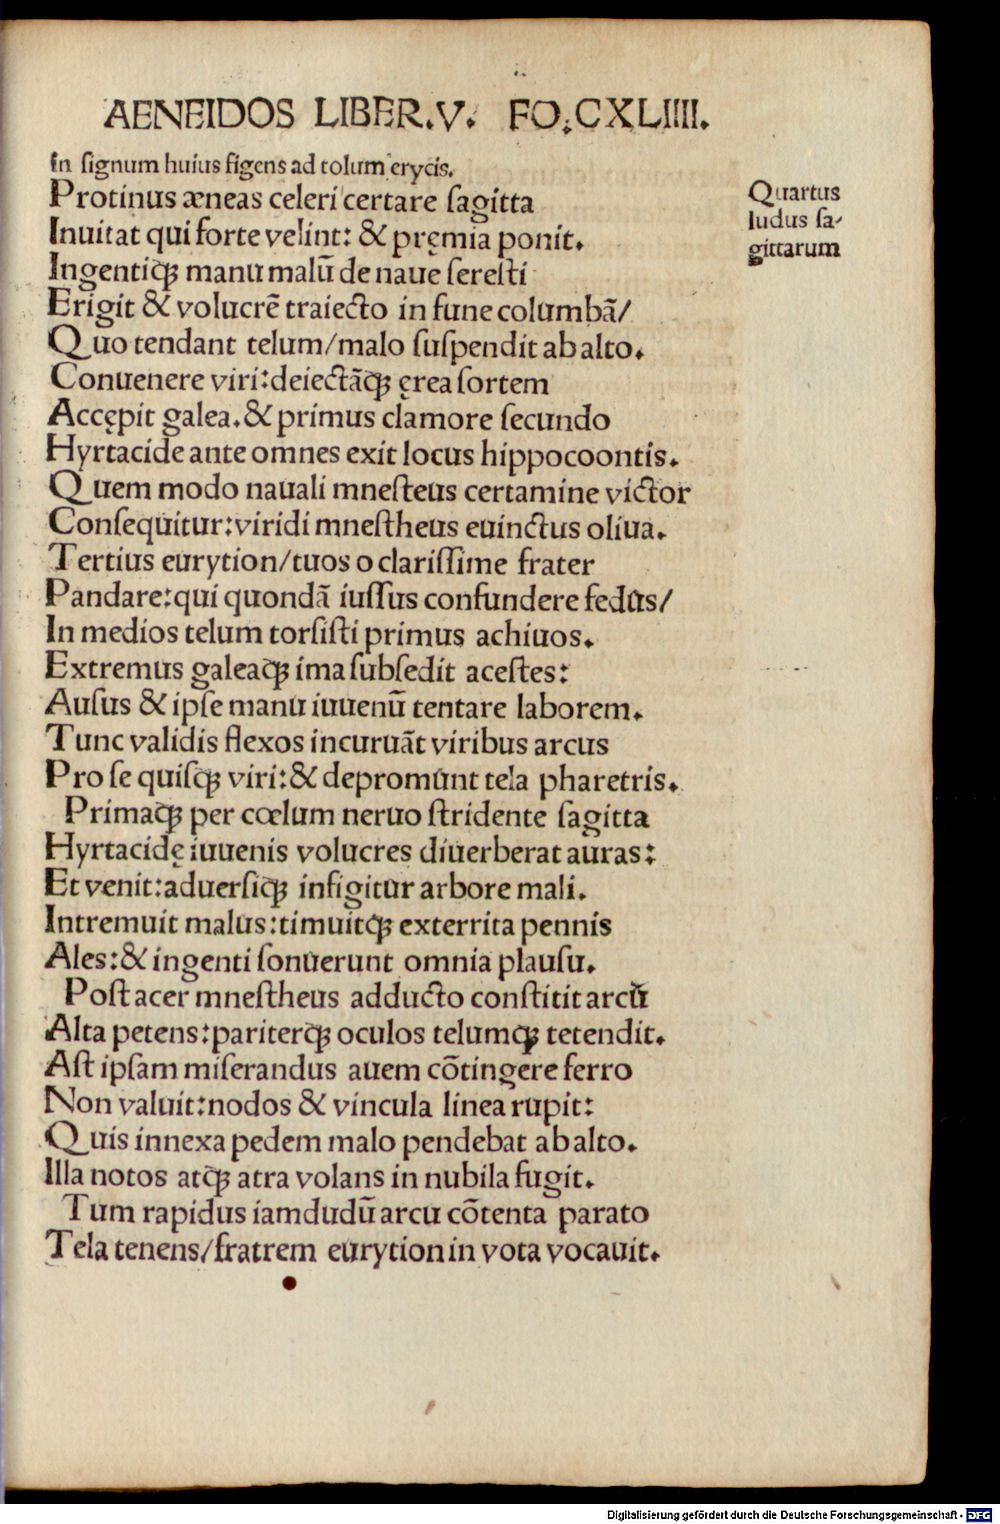 AENEIDOS LIBER.V. FO.CXLIIII.
In ſignum huius figens ad tolum erycis.
Protinus æneas celeri certare ſagitta
Quartus
ludus ſa-
gittarum
Inuitat qui forte velint: & pręmia ponit.
Ingentiꝗ manu malū de naue ſereſti
Erigit & volucrē traiecto in fune columbā/
Quo tendant telum/malo ſuſpendit ab alto.
Conuenere viri:deiectāꝗ ęrea ſortem
Accępit galea.& primus clamore ſecundo
Hyrtacide ante omnes exit locus hippocoontis.
Quem modo nauali mneſteus certamine victor
Conſequitur:viridi mneſtheus euinctus oliua.
Tertius eurytion/tuos o clariſſime frater
Pandare:qui quondā iuſſus confundere fedus/
In medios telum torſiſti primus achiuos.
Extremus galeaꝗ ima ſubſedit aceſtes:
Auſus & ipſe manu iuuenū tentare laborem.
Tunc validis flexos incuruāt viribus arcus
Pro ſe quiſꝗ viri:& depromunt tela pharetris.
Primaꝗ per cœlum neruo ſtridente ſagitta
Hyrtacidę iuuenis volucres diuerberat auras:
Et venit:aduerſiꝗ infigitur arbore mali.
Intremuit malus:timuitꝗ exterrita pennis
Ales:& ingenti ſonuerunt omnia plauſu.
Poſt acer mneſtheus adducto conſtitit arcū
Alta petens:pariterꝗ oculos telumꝗ tetendit.
Aſt ipſam miſerandus auem cōtingere ferro
Non valuit:nodos & vincula linea rupit:
Quis innexa pedem malo pendebat ab alto.
Illa notos atꝗ atra volans in nubila fugit.
Tum rapidus iamdudū arcu cōtenta parato
Tela tenens/fratrem eurytion in vota vocauit.
Digitalisierung gefördert durch die Deutsche Forschungsgemeinschaft - DFG